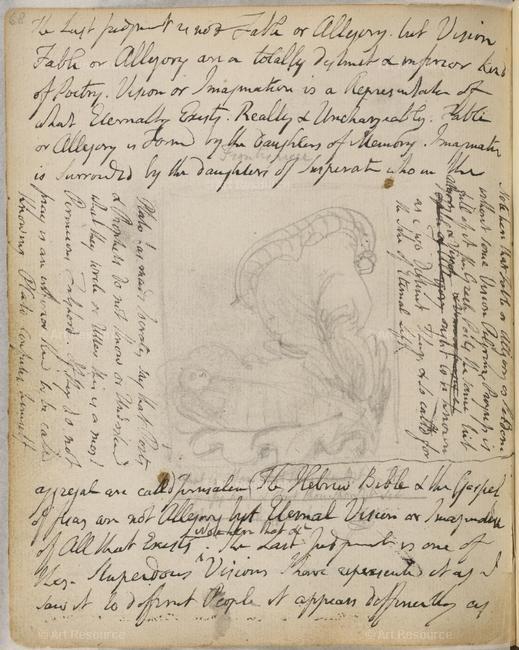 68
The Last Judgment is not Fable or Allegory but Vision
Fable or Allegory are a totally distinct & inferior kind
of Poetry. Vision or Imagination is a Representation of
what Eternally Exists. Really & Unchangeably. Fable
or Allegory is Formd by the Daughters of Memory. Imagination
is Surrounded by the daughters of Inspiration who in the
Frontispiece
aggregate are calld Jerusalem The Hebrew Bible & the Gospel
of Jesus are not Allegory but Eternal Vision or Imagination
of All that Exists Note here that
The Last Judgment is one of
these Stupendous Visions I have represented it as I
saw it to different People it appears differently as
Note here that Fable or Allegory is Seldom
without some Vision Pilgrims Progress is
full of it the Greek Poets the same but
Allegory & Vision
ought to be known
as Two Distinct Things & so calld for
the Sake of Eternal Life
Plato has made Socrates say that Poets
& Prophets do not Know or Understand
what they write or Utter this is a most
Pernicious Falshood. If they do not
pray is an inferior kind to be calld
Knowing Plato confutes himself
© Art Resource
© Art Resource